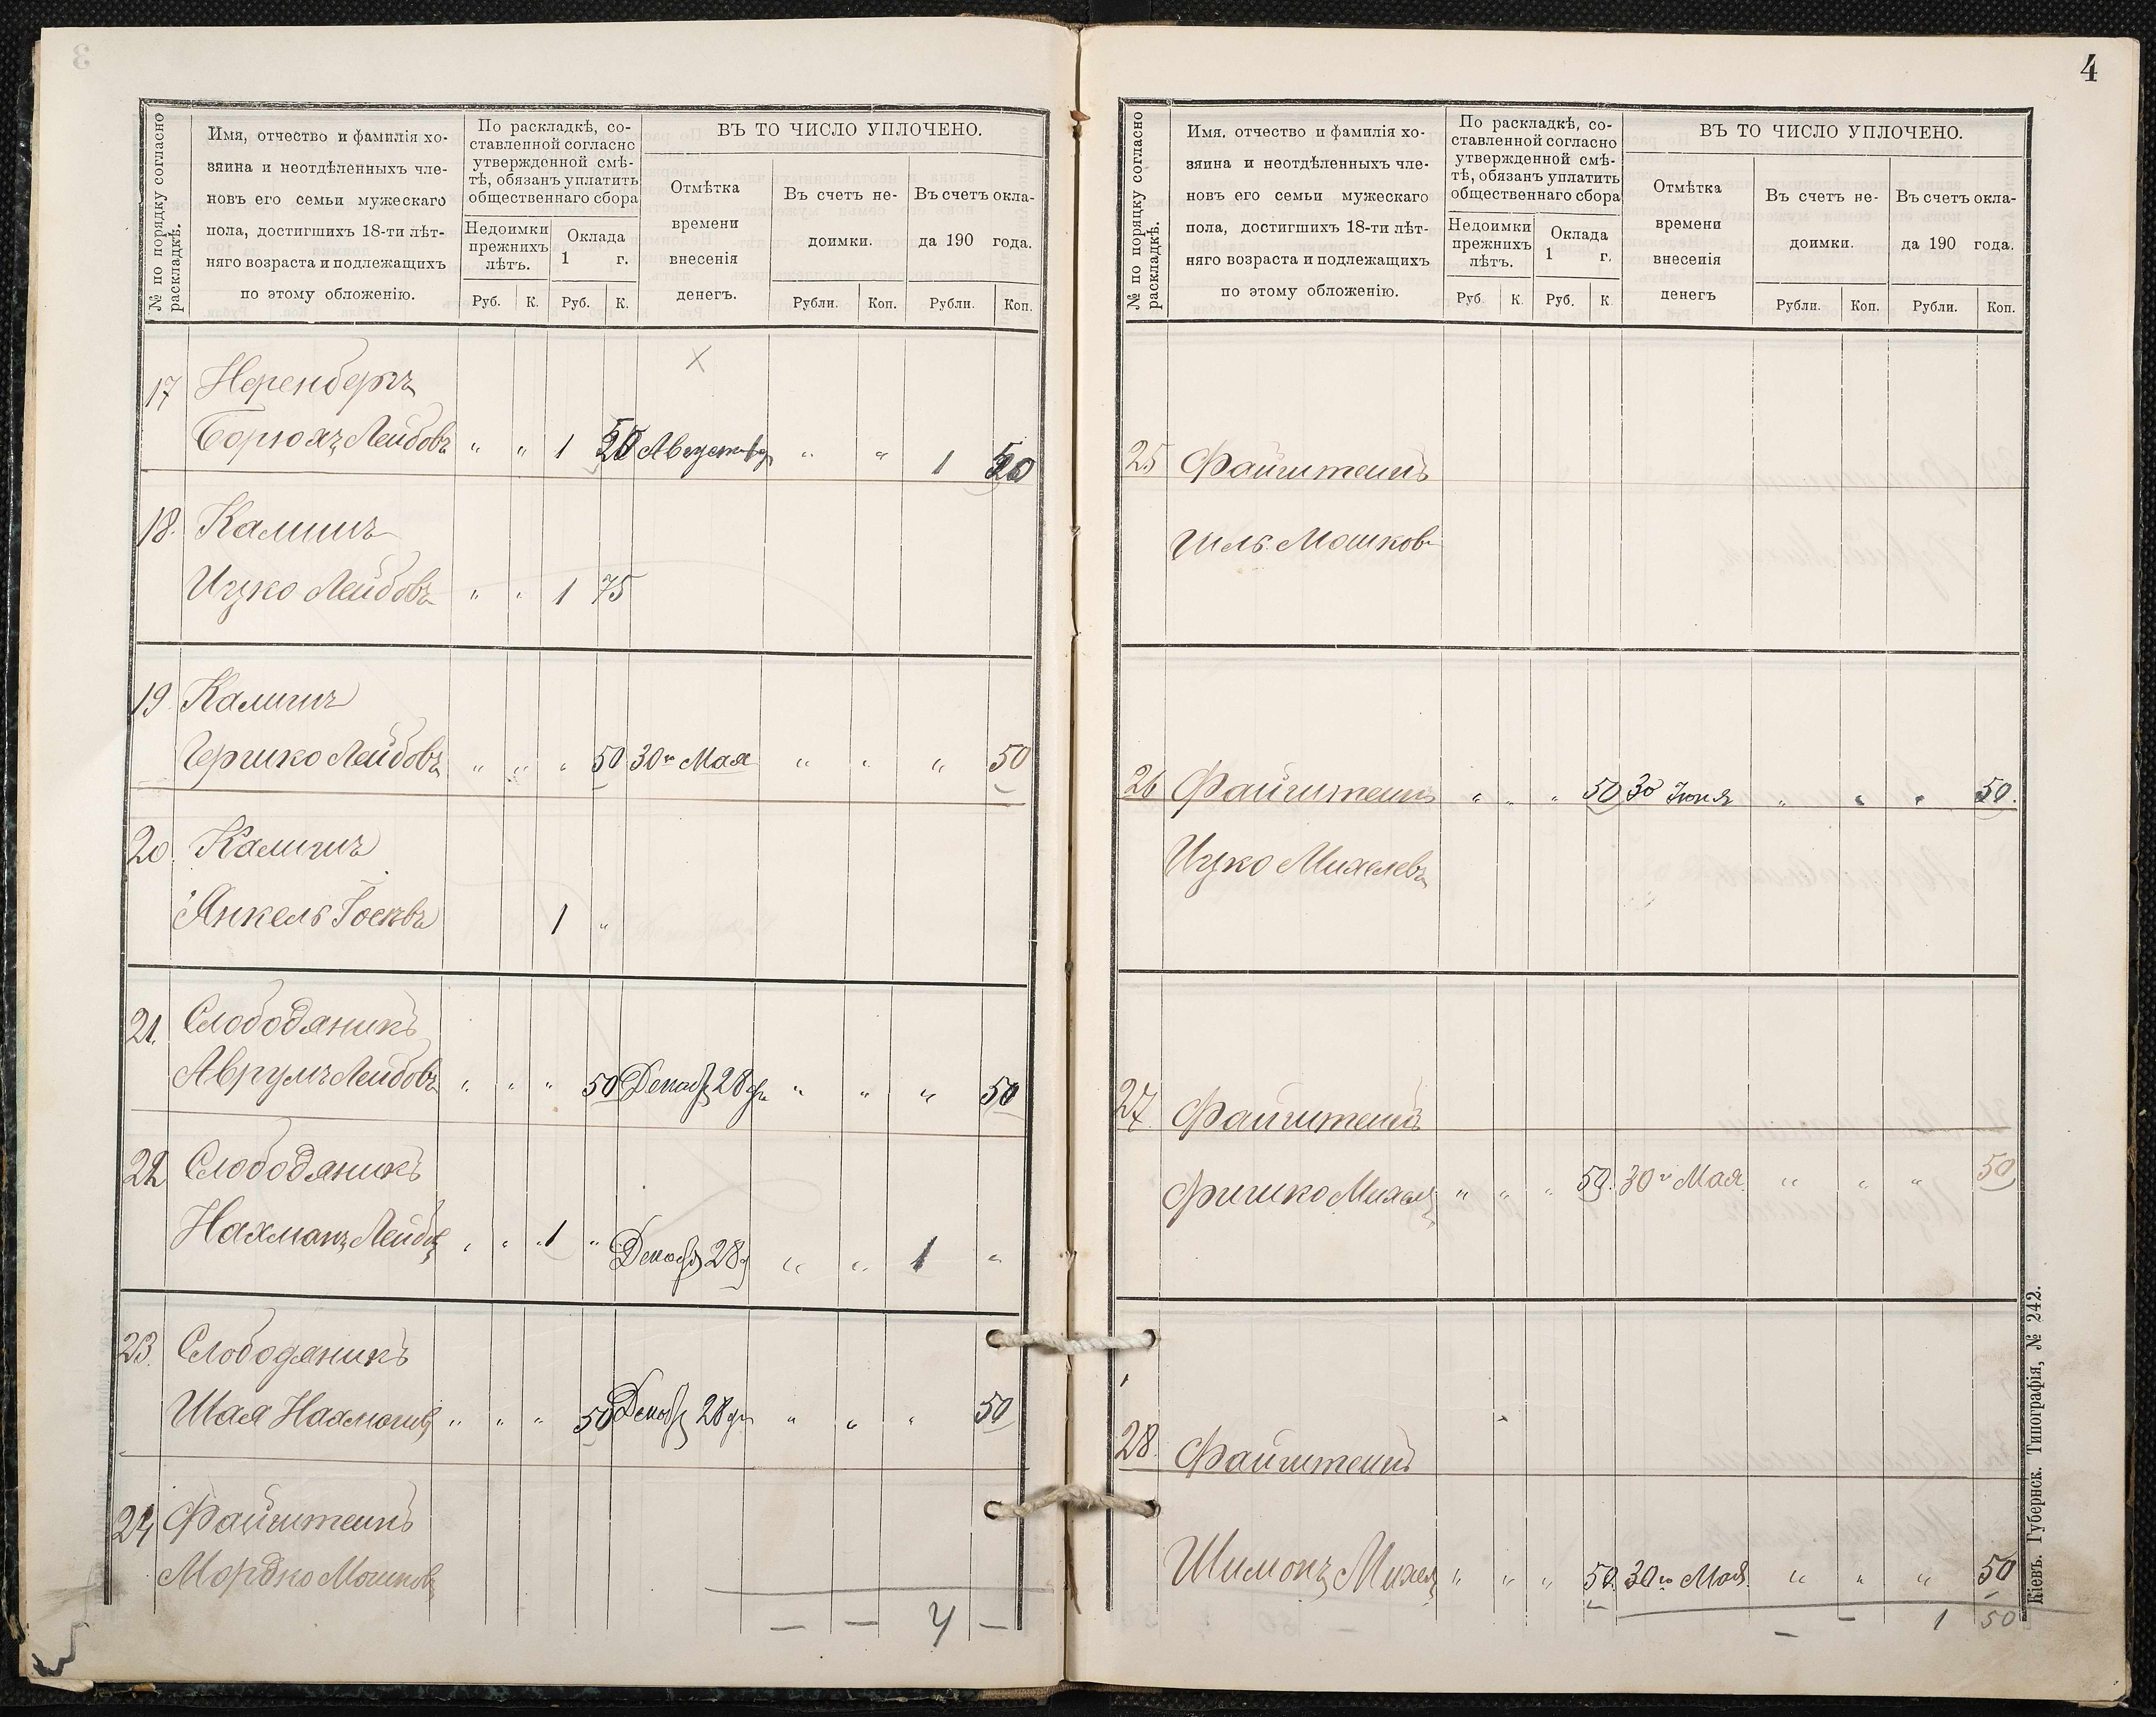 4
№ по порядку согласно раскладкѣ.
Имя, отчество и фамилія хо-
зяина и неотдѣленныхъ чле-
новъ его семьи мужескаго
пола, достигшихъ 18-ти лѣт-
няго возраста и подлежащихъ
по этому обложенію.
По раскладкѣ, со-
ставленной согласно
утвержденной смѣ-
тѣ, обязанъ уплатить
общественнаго сбора
Недоимки
прежнихъ
лѣтъ.
Оклада
1 г.
Руб. К. Руб. К.
ВЪ ТО ЧИСЛО УПЛОЧЕНО.
Отмѣтка
времени
внесенія
денегъ.
Въ счетъ не-
доимки.
Въ счетъ окла-
да 190 года.
Рубли. Коп. Рубли. Коп.
17 Неренбергъ
Борюхъ Лейбовъ " " 1 50 Августа " " 1 50
18. Калишъ
Ицко Лейбовъ " " 1 75
19 Калигиъ
Гершко Лейбовъ " " " 50 30го Мая " " " 50
20. Калигиъ
Янкель 1 "
21. Слободяникъ
Аврумъ Лейбовъ " " " 50 Декабр 28 " " " 50
22 Слободяникъ
Нахманъ Лейбов " " 1 " Декабр 28 " " 1 "
23. Слободяникъ
Шая Нахманов " " " 50 Декабр 28 " " " 50
24 Файнштейнъ
Мордко Мошков
— — 4 —
№ по порядку согласно раскладкѣ.
Имя. отчество и фамилія хо-
зяина и неотдѣленныхъ чле-
новъ его семьи мужескаго
пола, достигшихъ 18-ти лѣт-
няго возраста и подлежащихъ
по этому обложенію.
По раскладкѣ, со-
ставленной согласно
утвержденной смѣ-
тѣ, обязанъ уплатить
общественнаго сбора
Недоимки
прежнихъ
лѣтъ.
Оклада
1 г.
Руб. К. Руб. К.
ВЪ ТО ЧИСЛО УПЛОЧЕНО.
Отмѣтка
времени
внесенія
денегъ
Въ счетъ не-
доимки.
Въ счетъ окла-
да 190 года.
Рубли. Коп. Рубли. Коп.
25 Файнштейнъ
Мошков
26 Файнштейнъ " " " 50 30 Іюня " " " 50.
Ицко Михелевъ
27. Файнштейнъ
Михел " " " 50. 30го Мая " " " 50
28. Файнштейнъ
Шимонъ Михел " " " 50. 30го Мая " " " 50
— — 1 50
Кіевъ. Губернск. Типографія, № 242.